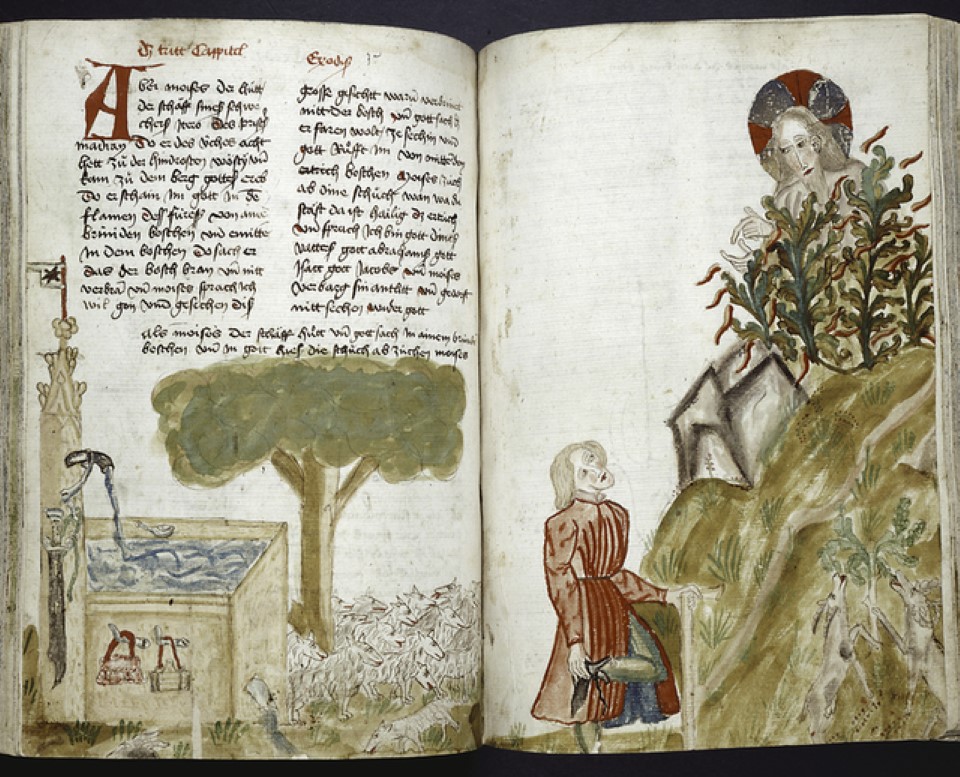 Daz tritt Cappitel
Exodi 3
Aber moises der hütt
der schäff sines schwe-
chers Jetro des priest
madian Do er des viches acht
hett zü der hindrosten wösty vnd
kam zü dem berg gottes oreb
Do erschain Im gott in de
flamen dess fürss von ame
brinnden boschen vnd emitte
In dem boschen Do sach er
das der bosch bran vn nitt
verbran vn moises sprach ich
wil gon vnd gesechen diss
grosse gesichtt warum verbrinnt
nitt der bosch vn gott sach
er faren wolt ze sechin vnd
gott Rufft Im von mitte den
boschen Moises züch
ab dine schüch wan wa du
staust da ist hailig
vn sprach Ich bin gott dines
vatters gott abrahams gott
Isacc gott Jacobs vn moises
verbarg sin antlitt vn
nitt sechen wider gott
als moises der schäff hütt vn gott sach in ainem
boschen vn In gott hies die schüch ab züchen moises